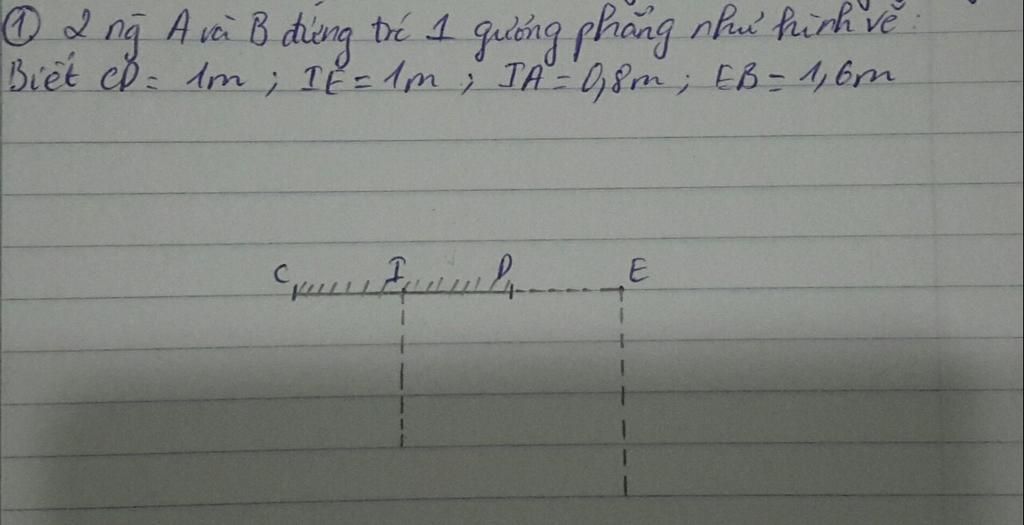 ① 2 ng̃ A và B đứng trc 1 gương phẳng như hình vẽ :
Biết CD = 1m ; IE = 1m ; IA = 0,8m ; EB = 1,6m
C I D E